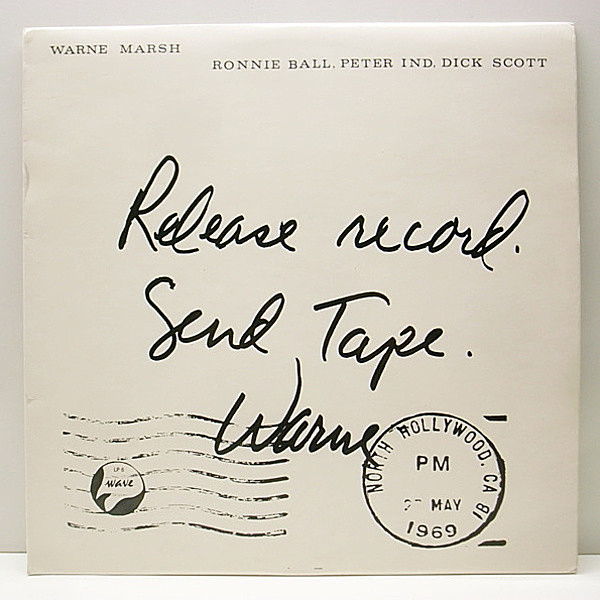 WARNE MARSH
RONNIE BALL, PETER IND, DICK SCOTT
Release record.
Send Tape.
Warne
LP 6
wave
NORTH HOLLYWOOD, CA 91
PM
MAY
1969